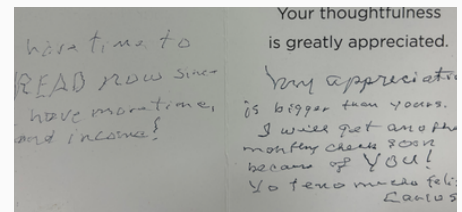 have time to
READ now since
have more time,
and income!
Your thoughtfulness
is greatly appreciated.
My appreciati
is bigger than yours.
I will get anothe
monthly check soon
because of YOU!
Yo teno mucho feli
Carlos